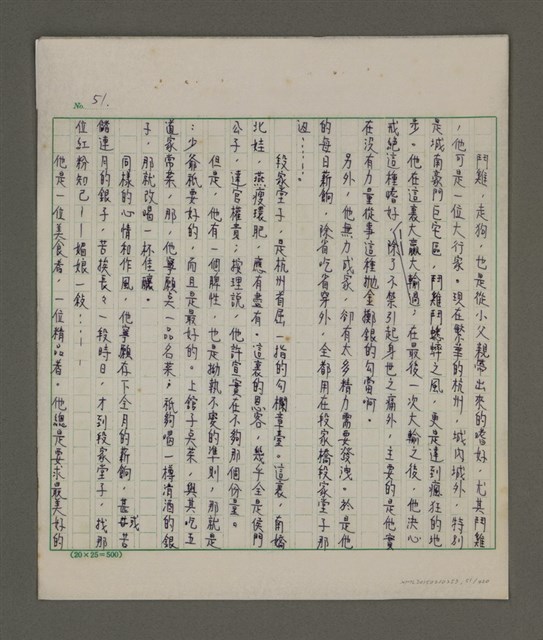 No. 51.
鬥雞，走狗，也是從小父親帶出來的嗜好，尤其鬥雞
，他可是一位大行家。現在繁華的杭州，城內城外，特別
是城南豪門巨宅區，鬥雞鬥蟋蟀之風，更是達到瘋狂的地
步。他在這裏大贏大輸過；在最後一次大輸之後，他決心
戒絕這種嗜好，除了不禁引起身世之痛外，主要的是他實
在沒有力量從事這種拋金擲銀的勾當啊。
另外，他無力成家，卻有太多精力需要發洩。於是他
的每日薪餉，除省吃省穿外，全都用在段家橋段家堂子那
邊……。
段家堂子，是杭州首屈一指的勾欄章臺。這裏，南嬌
北娃，燕瘦環肥，應有盡有。這裏的恩客，幾乎全是侯門
公子，達官權貴；按理說，他許宣實在不夠那個份量。
但是，他有一個脾性，也是拗執不變的準則，那就是
：少爺祇要好的，而且是最好的。上館子吃菜，與其吃五
道家常菜，那，他寧願點一品名菜；祇夠喝一樽清酒的銀
子，那就改喝一杯佳釀。
同樣的心情和作風，他寧願存下全月的薪餉，甚或苦
儲連月的銀子，苦挨長長一段時日，才到段家堂子，找那
位紅粉知己——媚娘一敍……。
他是一位美食者，一位精品者。他總是要求最美好的
(20×25=500)